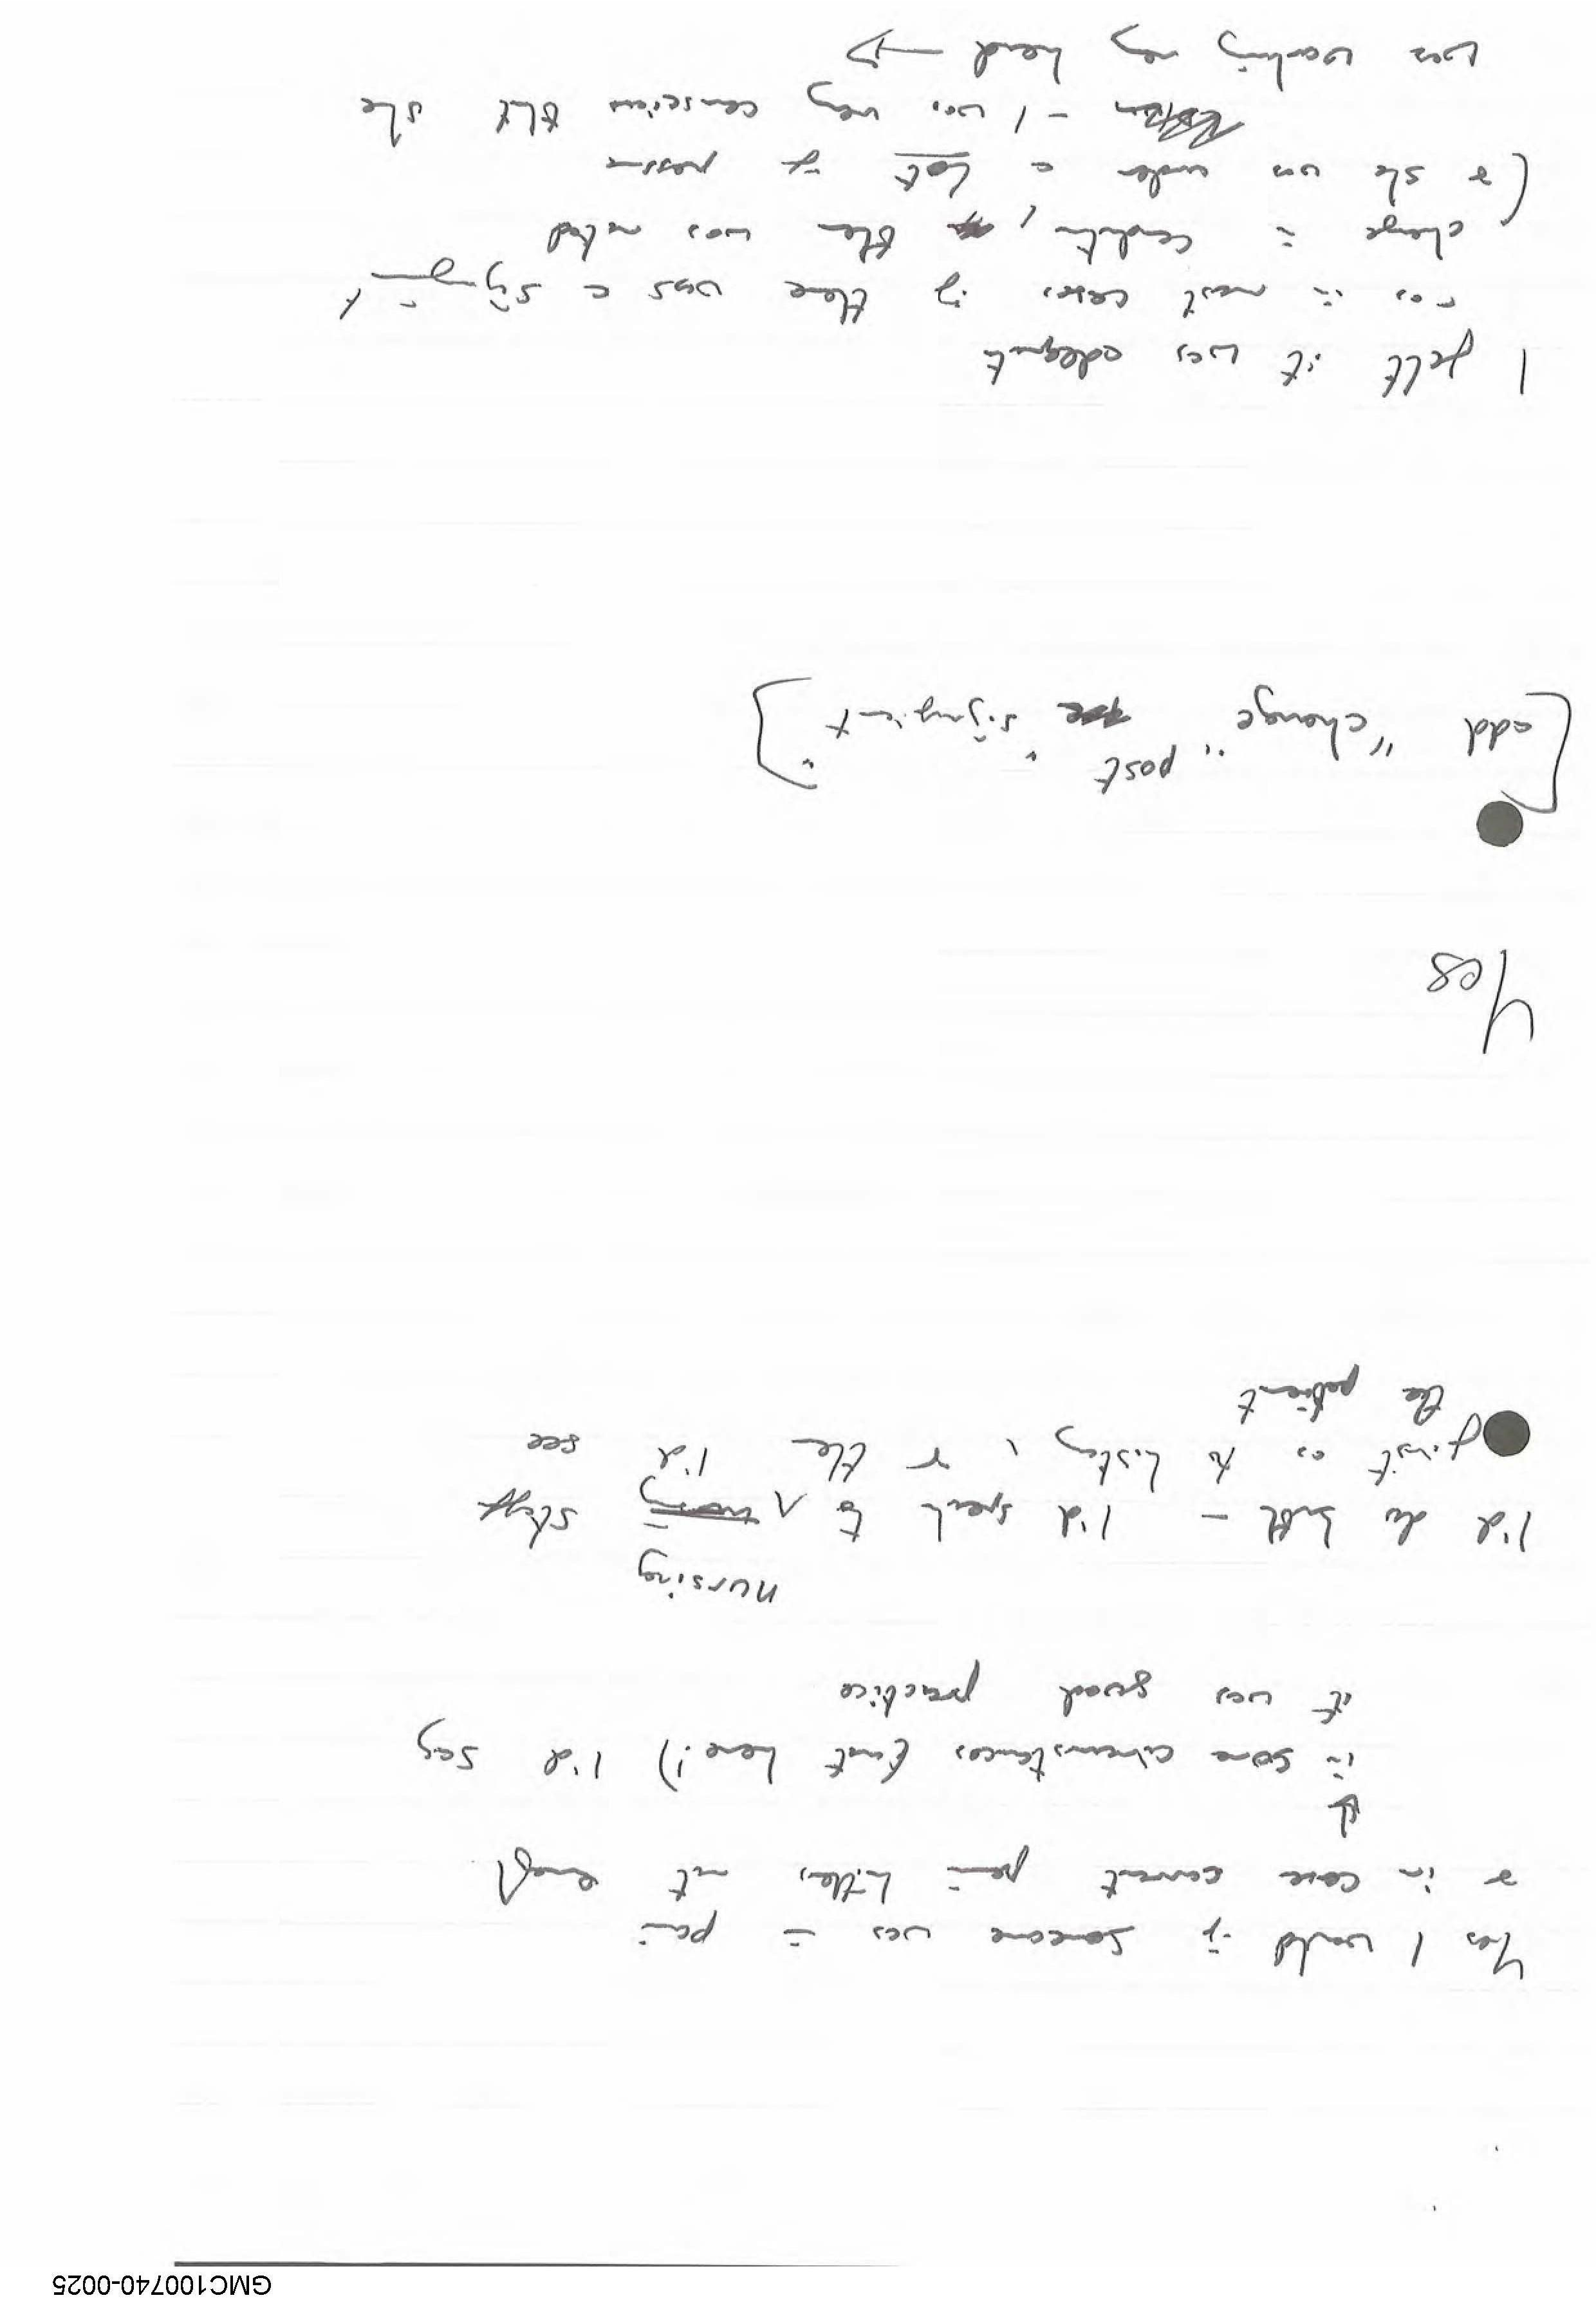 GMC100740-0025
Yes I would if someone was in pain
& in case current pain killers not enough
in some circumstances (not here!) I'd say
it was good practice
nursing
I'd do both - I'd speak to staff
first as to history, & then I'd see
the patient
Yes
[add "change" post "significant"]
I felt it was adequate
as in most cases if there was a significant
change in condition, then was noted
(& she was under a lot of pressure
- I was very conscious that she
was working very hard →